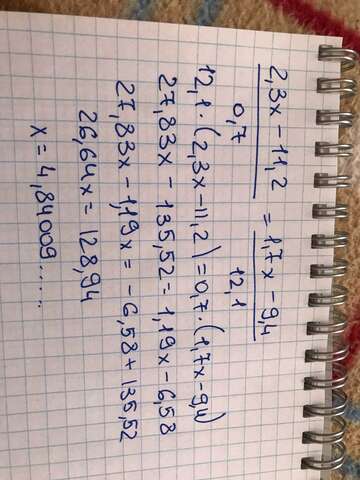 2,3x - 11,2 / 0,7 = 1,7x - 9,4 / 12,1
12,1 · (2,3x - 11,2) = 0,7 · (1,7x - 9,4)
27,83x - 135,52 = 1,19x - 6,58
27,83x - 1,19x = - 6,58 + 135,52
26,64x = 128,94
x = 4,84009......